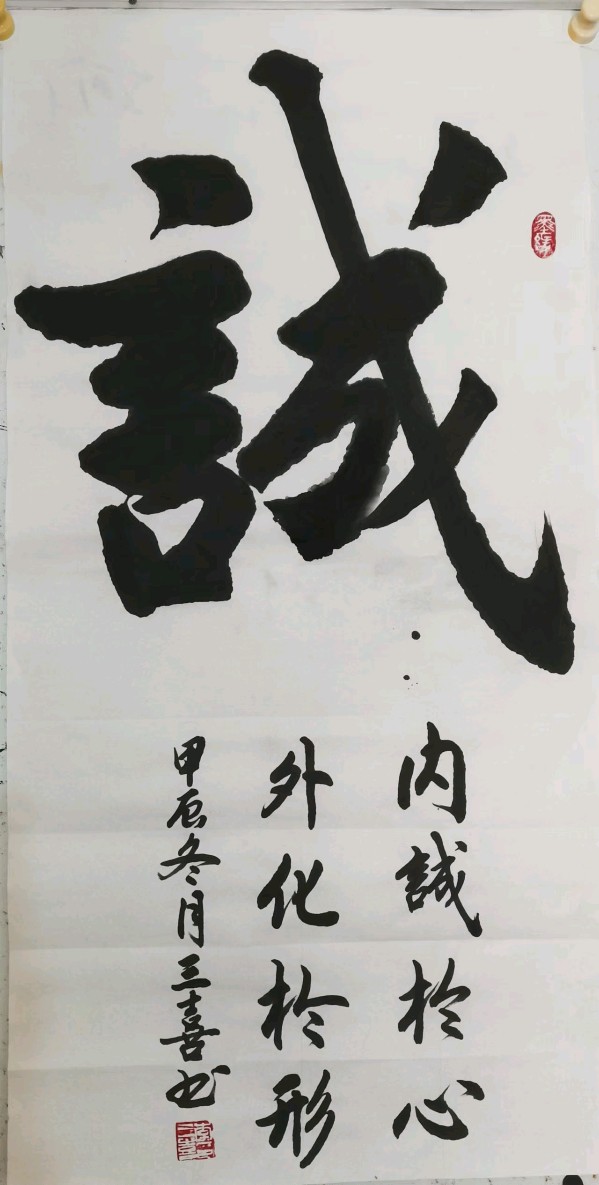 誠
内誠於心
外化於形
甲辰冬月三喜书